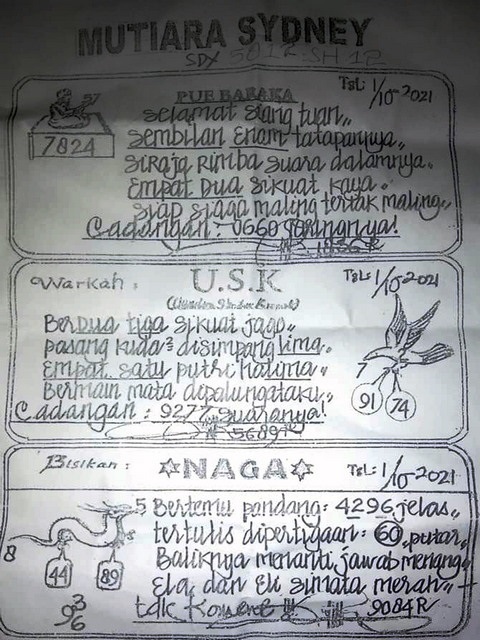 MUTIARA SYDNEY
SDY
PUE BARAKA
TgL: 1/10-2021
7824
Selamat siang tuan,,
Sembilan Enam tatapannya,,
Siraja Rimba suara dalamnya.
Empat Dua sikuat kaya.
Siap siaga maling teriak maling,,
Cadangan: 0660 Jaringnya!
Warkah:
U.S.K
TgL: 1/10-2021
Berdua tiga sikuat jago,,
pasang kuda² disimpang lima.
Empat satu putri halima,,
Bermain mata dipalungataku,,
Cadangan: 9277 Suaranya!
5689R
7
91 74
Bisikan:
NAGA
TgL: 1/10-2021
5 Bertemu pandang: 4296 jelas,,
tertulis dipertigaan: 60, putar,,
Baliknya menanti, jawab
Ela, dan Eli simata merah,,
tdk
9084R
8
44 89
3
9
6